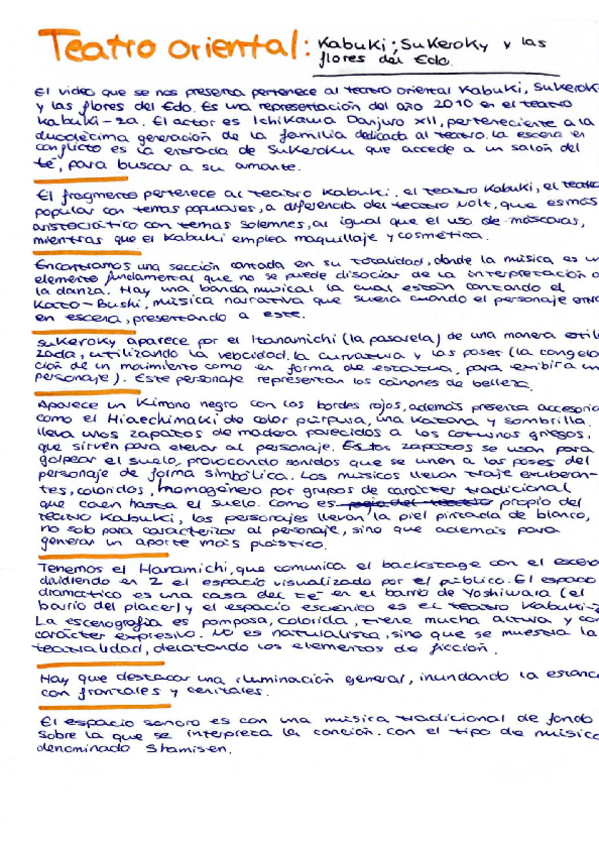 Teatro oriental: Kabuki; Sukeroky y las
flores del Edo.
El video que se nos presenta pertenece al teatro oriental Kabuki, Sukerok
y las flores del Edo. Es una representación del año 2010 en el teatro
Kabuki-za. El actor es Ichikawa Danjuro XII, perteneciente a la
duodécima generación de la familia dedicada al teatro. La escena en
conflicto es la entrada de Sukeroku que accede a un salón del
té, para buscar a su amante.
El fragmento pertenece al teatro Kabuki. El teatro Kabuki, el teatro
popular con temas populares, a diferencia del teatro Noh, que es más
aristocrático con temas solemnes, al igual que el uso de máscaras,
mientras que el Kabuki emplea maquillaje y cosmética.
Encontramos una sección cantada en su totalidad, donde la música es un
elemento fundamental que no se puede disociar de la interpretación o
la danza. Hay una banda musical la cual están cantando el
Kato-Bushi, música narrativa que suena cuando el personaje entra
en escena, presentando a este.
Sukeroky aparece por el Hanamichi (la pasarela) de una manera estili
zada, utilizando la velocidad, la curvatura y las poses (la congela
ción de un movimiento como en forma de estatua, para exhibir a un
personaje). Este personaje representan los cánones de belleza.
Aparece un Kimono negro con los bordes rojos, además presenta accesorio
como el Hiaechimaki de color púrpura, una katana y sombrilla.
lleva unos zapatos de madera parecidos a los coturnos griegos,
que sirven para elevar al personaje. Estos zapatos se usan para
golpear el suelo, provocando sonidos que se unen a las poses del
personaje de forma simbólica. Los músicos llevan traje exuberan-
tes, coloridos, homogéneo por grupos de carácter tradicional
que caen hasta el suelo. Como es propio del
teatro Kabuki, los personajes llevan la piel pintada de blanco,
no solo para caracterizar al personaje, sino que además para
generar un aporte más plástico.
Tenemos el Hanamichi, que comunica el backstage con el escena
dividiendo en 2 el espacio visualizado por el público. El espacio
dramático es una casa del té en el barrio de Yoshiwara (el
barrio del placer) y el espacio escénico es el teatro Kabuki-z
La escenografía es pomposa, colorida, tiene mucha altura y con
carácter expresivo. No es naturalista, sino que se muestra la
teatralidad, delatando los elementos de ficción.
Hay que destacar una iluminación general, inundando la estanc
con frontales y cenitales.
El espacio sonoro es con una música tradicional de fondo
sobre la que se interpreta la canción. con el tipo de música
denominado Shamisen.